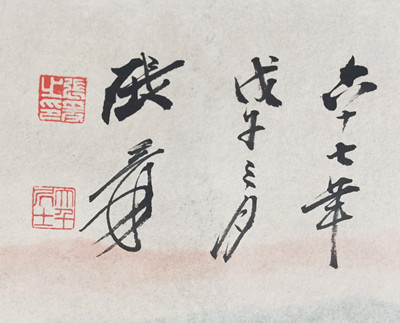 六十七年
戊午三月
張爰
張爰之印
大千居士